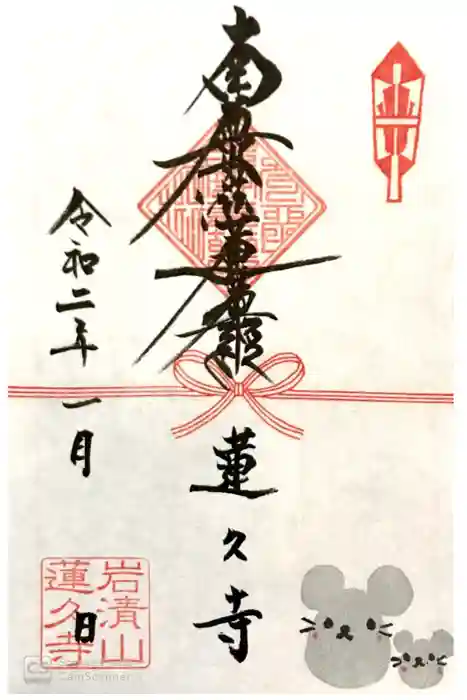 南無妙法蓮華経
蓮久寺
令和二年一月
日
岩清山
蓮久寺
CamScanner